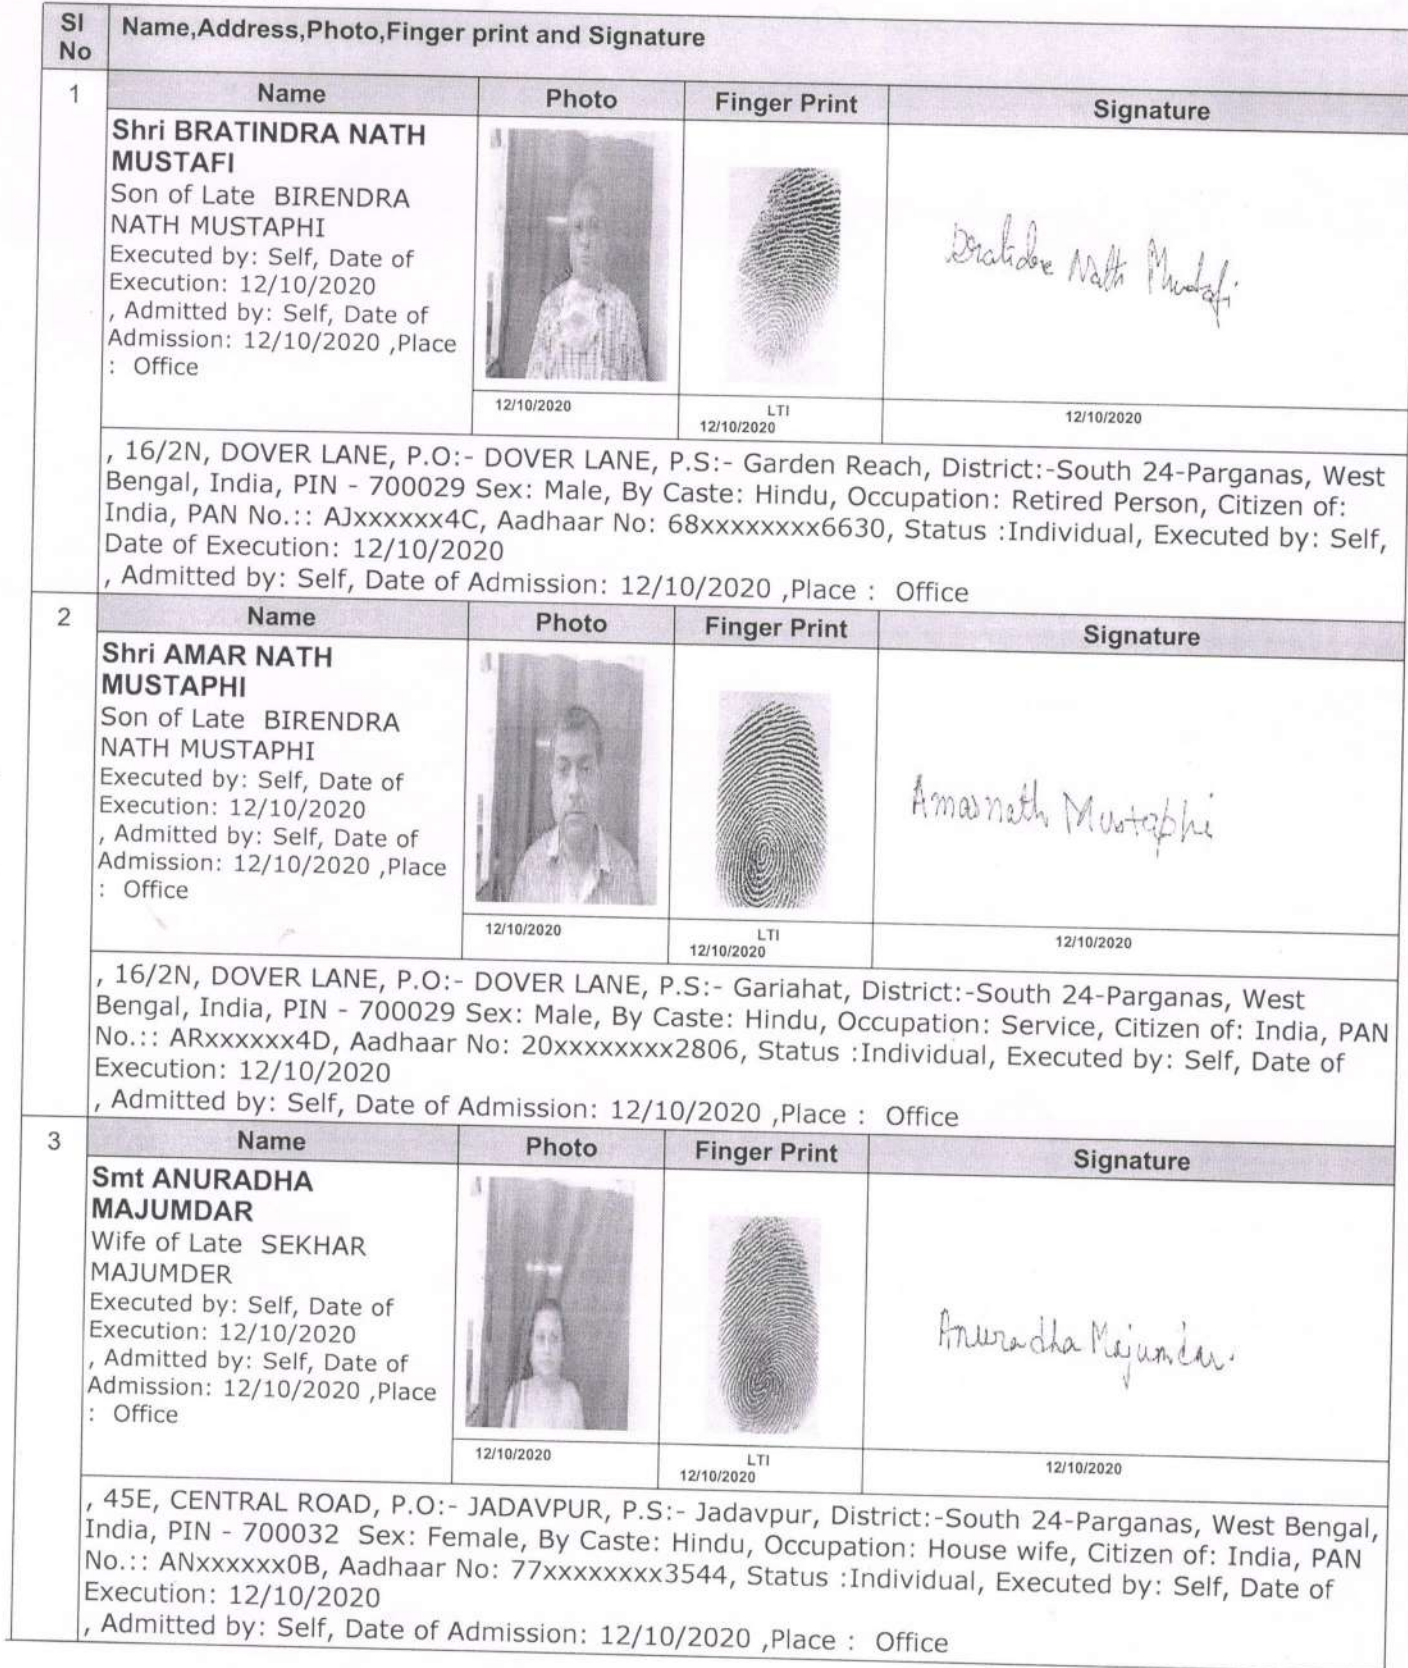 Sl No Name,Address,Photo,Finger print and Signature
1 Name Photo Finger Print Signature
Shri BRATINDRA NATH
MUSTAFI
Son of Late BIRENDRA
NATH MUSTAPHI
Executed by: Self, Date of
Execution: 12/10/2020
, Admitted by: Self, Date of
Admission: 12/10/2020 ,Place
: Office
Nath Mustafi
12/10/2020 LTI 12/10/2020 12/10/2020
, 16/2N, DOVER LANE, P.O:- DOVER LANE, P.S:- Garden Reach, District:-South 24-Parganas, West
Bengal, India, PIN - 700029 Sex: Male, By Caste: Hindu, Occupation: Retired Person, Citizen of:
India, PAN No.:: AJxxxxxx4C, Aadhaar No: 68xxxxxxxx6630, Status :Individual, Executed by: Self,
Date of Execution: 12/10/2020
, Admitted by: Self, Date of Admission: 12/10/2020 ,Place : Office
2 Name Photo Finger Print Signature
Shri AMAR NATH
MUSTAPHI
Son of Late BIRENDRA
NATH MUSTAPHI
Executed by: Self, Date of
Execution: 12/10/2020
, Admitted by: Self, Date of
Admission: 12/10/2020 ,Place
: Office
Amarnath Mustaphi
12/10/2020 LTI 12/10/2020 12/10/2020
, 16/2N, DOVER LANE, P.O:- DOVER LANE, P.S:- Gariahat, District:-South 24-Parganas, West
Bengal, India, PIN - 700029 Sex: Male, By Caste: Hindu, Occupation: Service, Citizen of: India, PAN
No.:: ARxxxxxx4D, Aadhaar No: 20xxxxxxxx2806, Status :Individual, Executed by: Self, Date of
Execution: 12/10/2020
, Admitted by: Self, Date of Admission: 12/10/2020 ,Place : Office
3 Name Photo Finger Print Signature
Smt ANURADHA
MAJUMDAR
Wife of Late SEKHAR
MAJUMDER
Executed by: Self, Date of
Execution: 12/10/2020
, Admitted by: Self, Date of
Admission: 12/10/2020 ,Place
: Office
Anuradha Majumdar.
12/10/2020 LTI 12/10/2020 12/10/2020
, 45E, CENTRAL ROAD, P.O:- JADAVPUR, P.S:- Jadavpur, District:-South 24-Parganas, West Bengal,
India, PIN - 700032 Sex: Female, By Caste: Hindu, Occupation: House wife, Citizen of: India, PAN
No.:: ANxxxxxx0B, Aadhaar No: 77xxxxxxxx3544, Status :Individual, Executed by: Self, Date of
Execution: 12/10/2020
, Admitted by: Self, Date of Admission: 12/10/2020 ,Place : Office